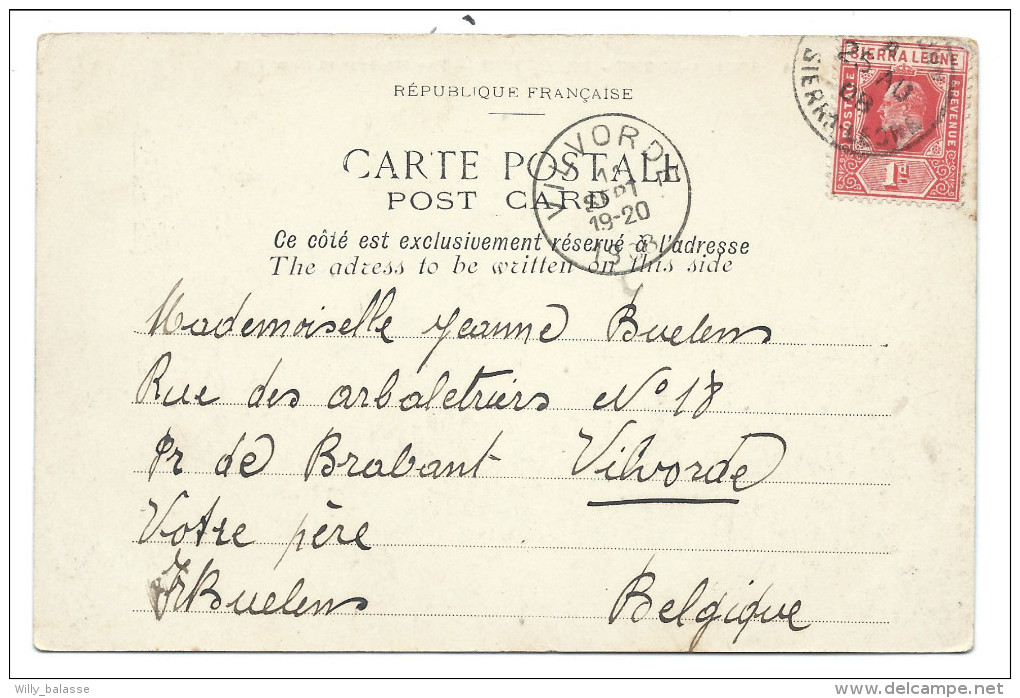 RÉPUBLIQUE FRANÇAISE
CARTE POSTALE
POST CARD
Ce côté est exclusivement réservé à l'adresse
The adress to be written on this side
SIERRA LEONE
POSTAGE & REVENUE
1d
SIERRA LEONE
25 AU
08
VILVORDE
12
SEPT
19-20
1908
Mademoiselle Jeanne Buelens
Rue des arbaletriers No 18
Pr de Brabant Vilvorde
Votre père
Buelens
Belgique
Willy_balasse
delcampe.net